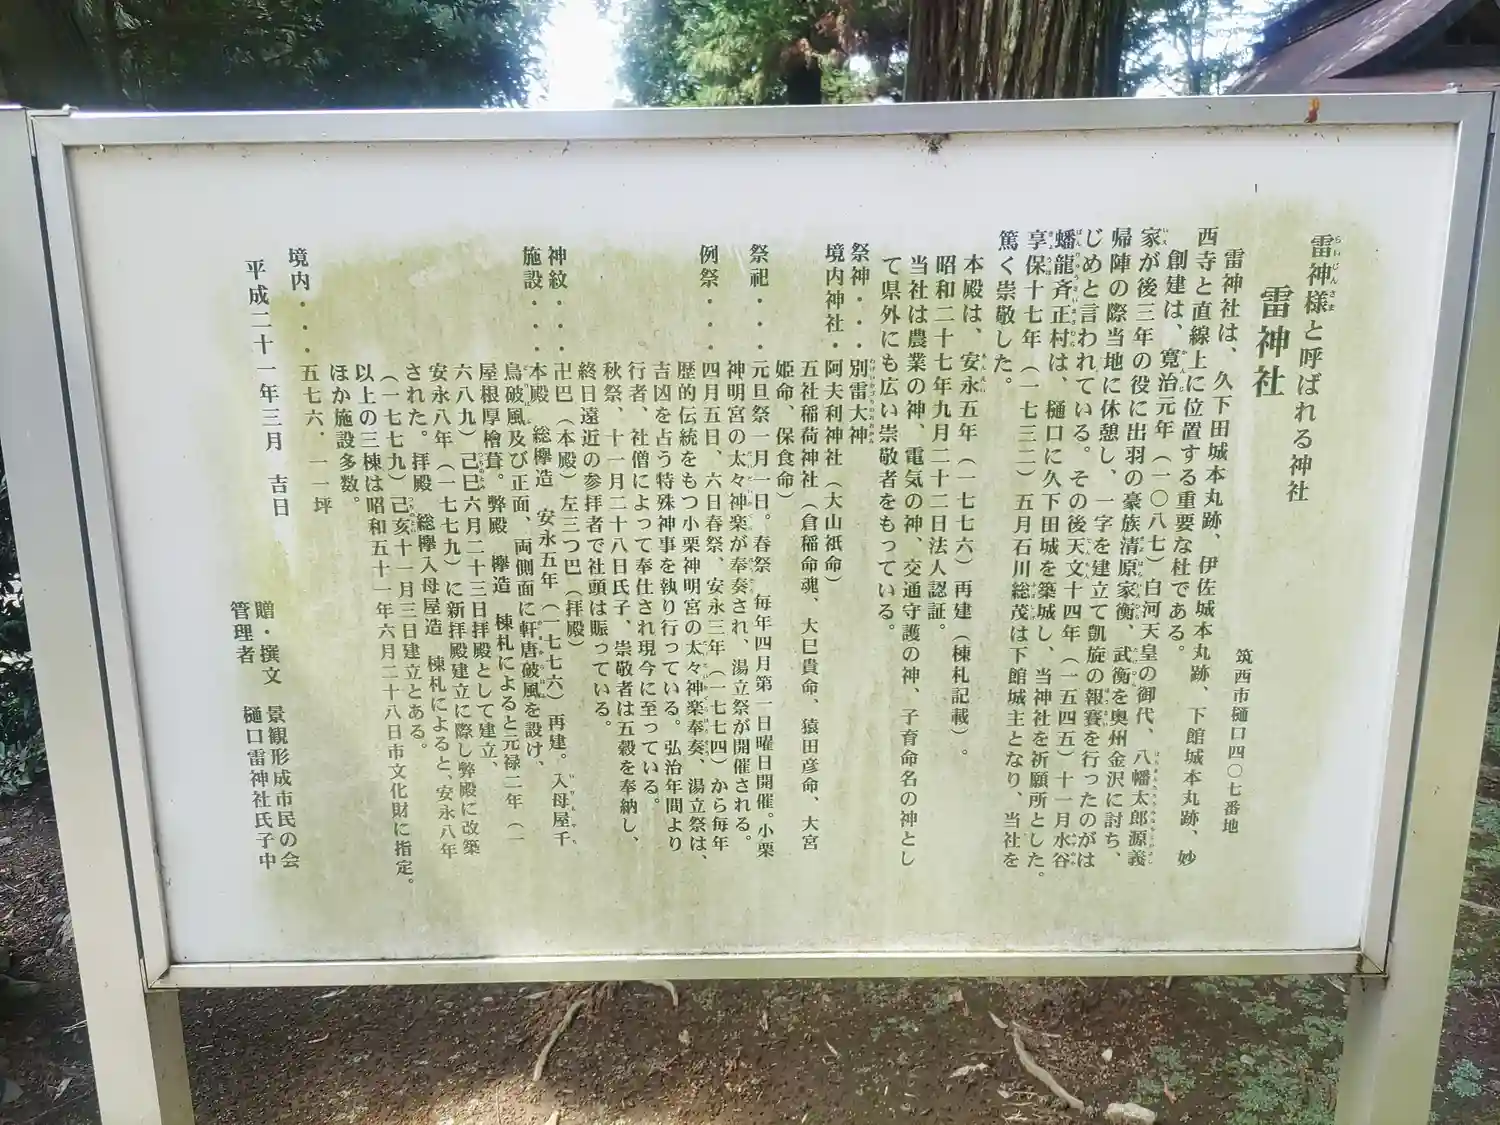 雷神様と呼ばれる神社
雷神社
筑西市樋口四〇七番地
雷神社は、久下田城本丸跡、伊佐城本丸跡、下館城本丸跡、妙
西寺と直線上に位置する重要な社である。
創建は、寛治元年（一〇八七）白河天皇の御代、八幡太郎源義
家が後三年の役に出羽の豪族清原家衡、武衡を奥州金沢に討ち、
帰陣の際当地に休憩し、一字を建立て凱旋の報賽を行ったのがは
じめと言われている。その後天文十四年（一五四五）十一月水谷
蟠龍斉正村は、樋口に久下田城を築城し、当神社を祈願所とした。
享保十七年（一七三二）五月石川総茂は下館城主となり、当社を
篤く崇敬した。
本殿は、安永五年（一七七六）再建（棟札記載）。
昭和二十七年九月二十二日法人認証。
当社は農業の神、電気の神、交通守護の神、子育命名の神とし
て県外にも広い崇敬者をもっている。
祭神・・・別雷大神
境内神社・阿夫利神社（大山祇命）
五社稲荷神社（倉稲命魂、大巳貴命、猿田彦命、大宮
姫命、保食命）
祭祀・・・元旦祭一月一日。春祭 毎年四月第一日曜日開催。小栗
神明宮の太々神楽が奉奏され、湯立祭が開催される。
例祭・・・四月五日、六日春祭、安永三年（一七七四）から毎年
歴的伝統をもつ小栗神明宮の太々神楽奉奏、湯立祭は、
吉凶を占う特殊神事を執り行っている。弘治年間より
行者、社僧によって奉仕され現今に至っている。
秋祭、十一月二十八日氏子、崇敬者は五穀を奉納し、
終日遠近の参拝者で社頭は賑っている。
神紋・・・卍巴（本殿）左三つ巴（拝殿）
施設・・・本殿 総欅造 安永五年（一七七六）再建。入母屋千
鳥破風及び正面、両側面に軒唐破風を設け、
屋根厚檜葺。弊殿 欅造 棟札によると元禄二年（一
六八九）己巳六月二十三日拝殿として建立、
安永八年（一七七九）に新拝殿建立に際し弊殿に改築
された。拝殿 総欅入母屋造 棟札によると、安永八年
（一七七九）己亥十一月三日建立とある。
以上の三棟は昭和五十一年六月二十八日市文化財に指定。
ほか施設多数。
境内・・・五七六．一一坪
平成二十一年三月 吉日
贈・撰文 景観形成市民の会
管理者 樋口雷神社氏子中